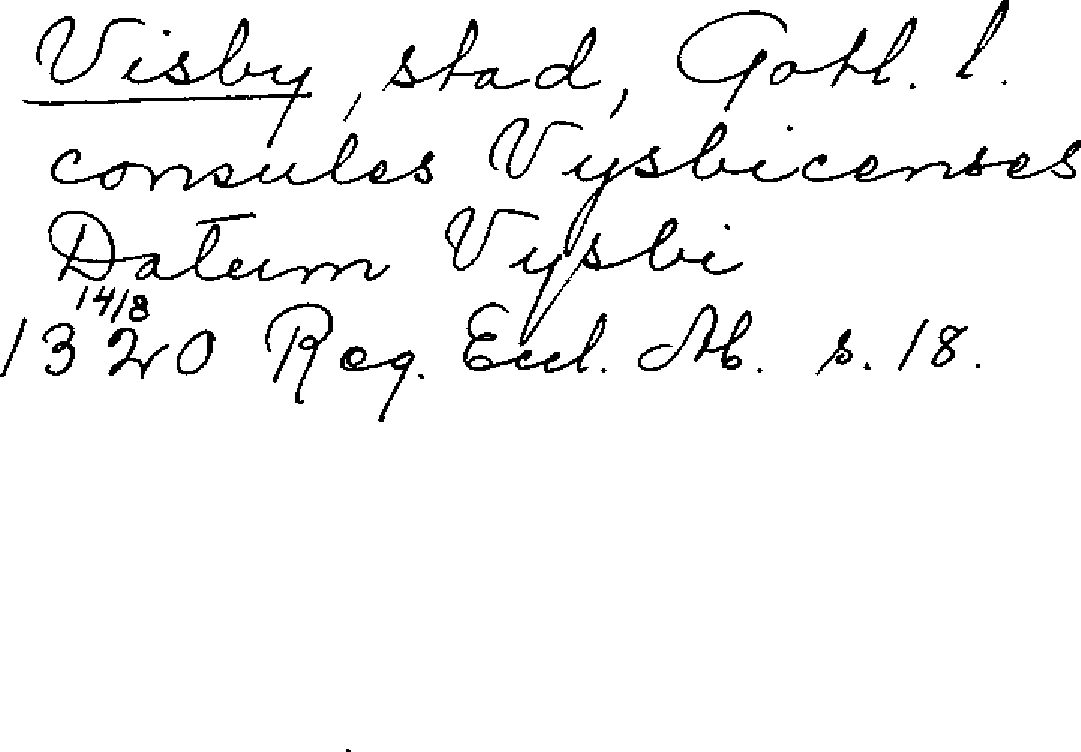 Visby, stad, Gotl. l.
consules Vysbicenses
Datum Vysbi
14/8
1320 Reg. Eccl. Ab. s. 18.